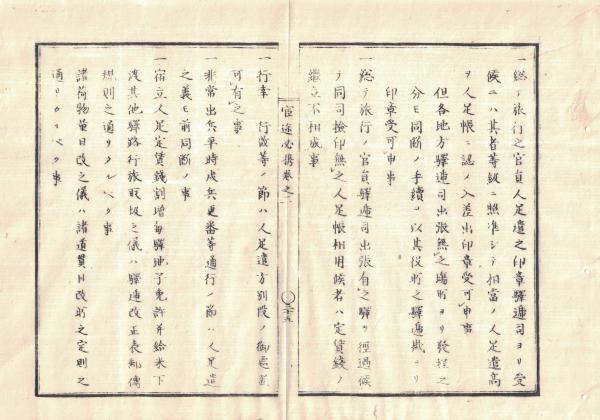 一總テ旅行之官員人足遣之印章驛逓司ヨリ受
候ニハ其者等級ニ照准シテ相當ノ人足遣高
ヲ人足帳ニ認ノ入差出印章受可申事
但各地方驛逓司出張無之場所ヨリ發程之
分モ同断ノ手續ヲ以其役所之驛逓掛ヨリ
印章受可申事
一總テ旅行ノ官員驛逓司出張有之驛ヲ經過候
テ同司撿印無之人足帳相用候者ハ定賃錢ノ
繼立不相成事
官途必携巻之二
三十五
一行幸 行啓等ノ節ハ人足遣方別段ノ御處置
可有之事
一非常出兵早時戍兵更番等通行ノ節ハ人足遣
之義モ前同断ノ事
一宿立人足定賃錢割増毎驛地子免許并給米下
渡其他驛路行旅取扱之儀ハ驛逓改正表郵傳
規則之通リタルベク事
諸荷物量目改之儀ハ諸道貫目改所之定則之
通リタルベク事